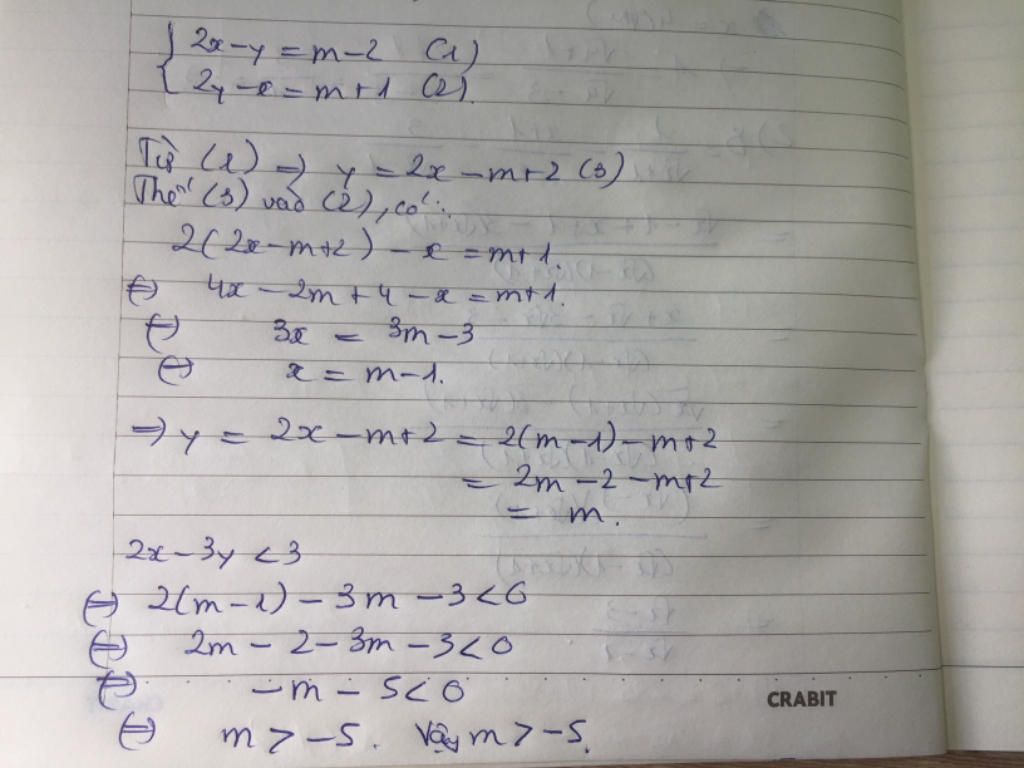 2x-y = m-2 (1)
2y-x = m+1 (2).
Từ (1) => y = 2x-m+2 (3)
Thế (3) vào (2), có:
2(2x-m+2) - x = m+1.
⇔ 4x - 2m + 4 - x = m+1.
⇔ 3x = 3m-3
⇔ x = m-1.
=> y = 2x-m+2 = 2(m-1)-m+2
= 2m-2-m+2
= m.
2x-3y < 3
⇔ 2(m-1) - 3m - 3 < 0
⇔ 2m - 2 - 3m - 3 < 0
⇔ -m - 5 < 0
CRABIT
⇔ m > -5. Vậy m > -5.